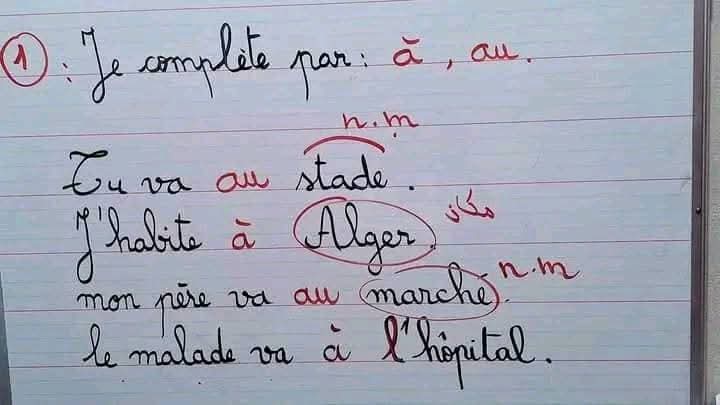 1 : Je complète par : à , au.
n.m
Tu va au stade.
J'habite à Alger. مكان
mon père va au marché. n.m
le malade va à l'hôpital.